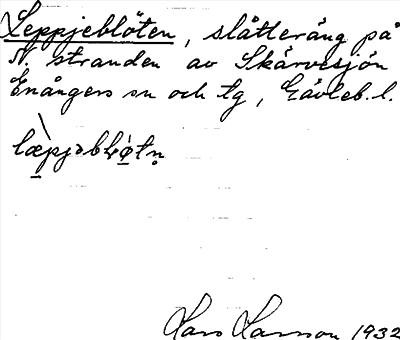 Leppjeblöten, slåtteräng på
N. stranden av Skärvesjön
Enångers sn och tg, Gävleb. l.
læpjəbløtn̥
Lars Larsson 1932